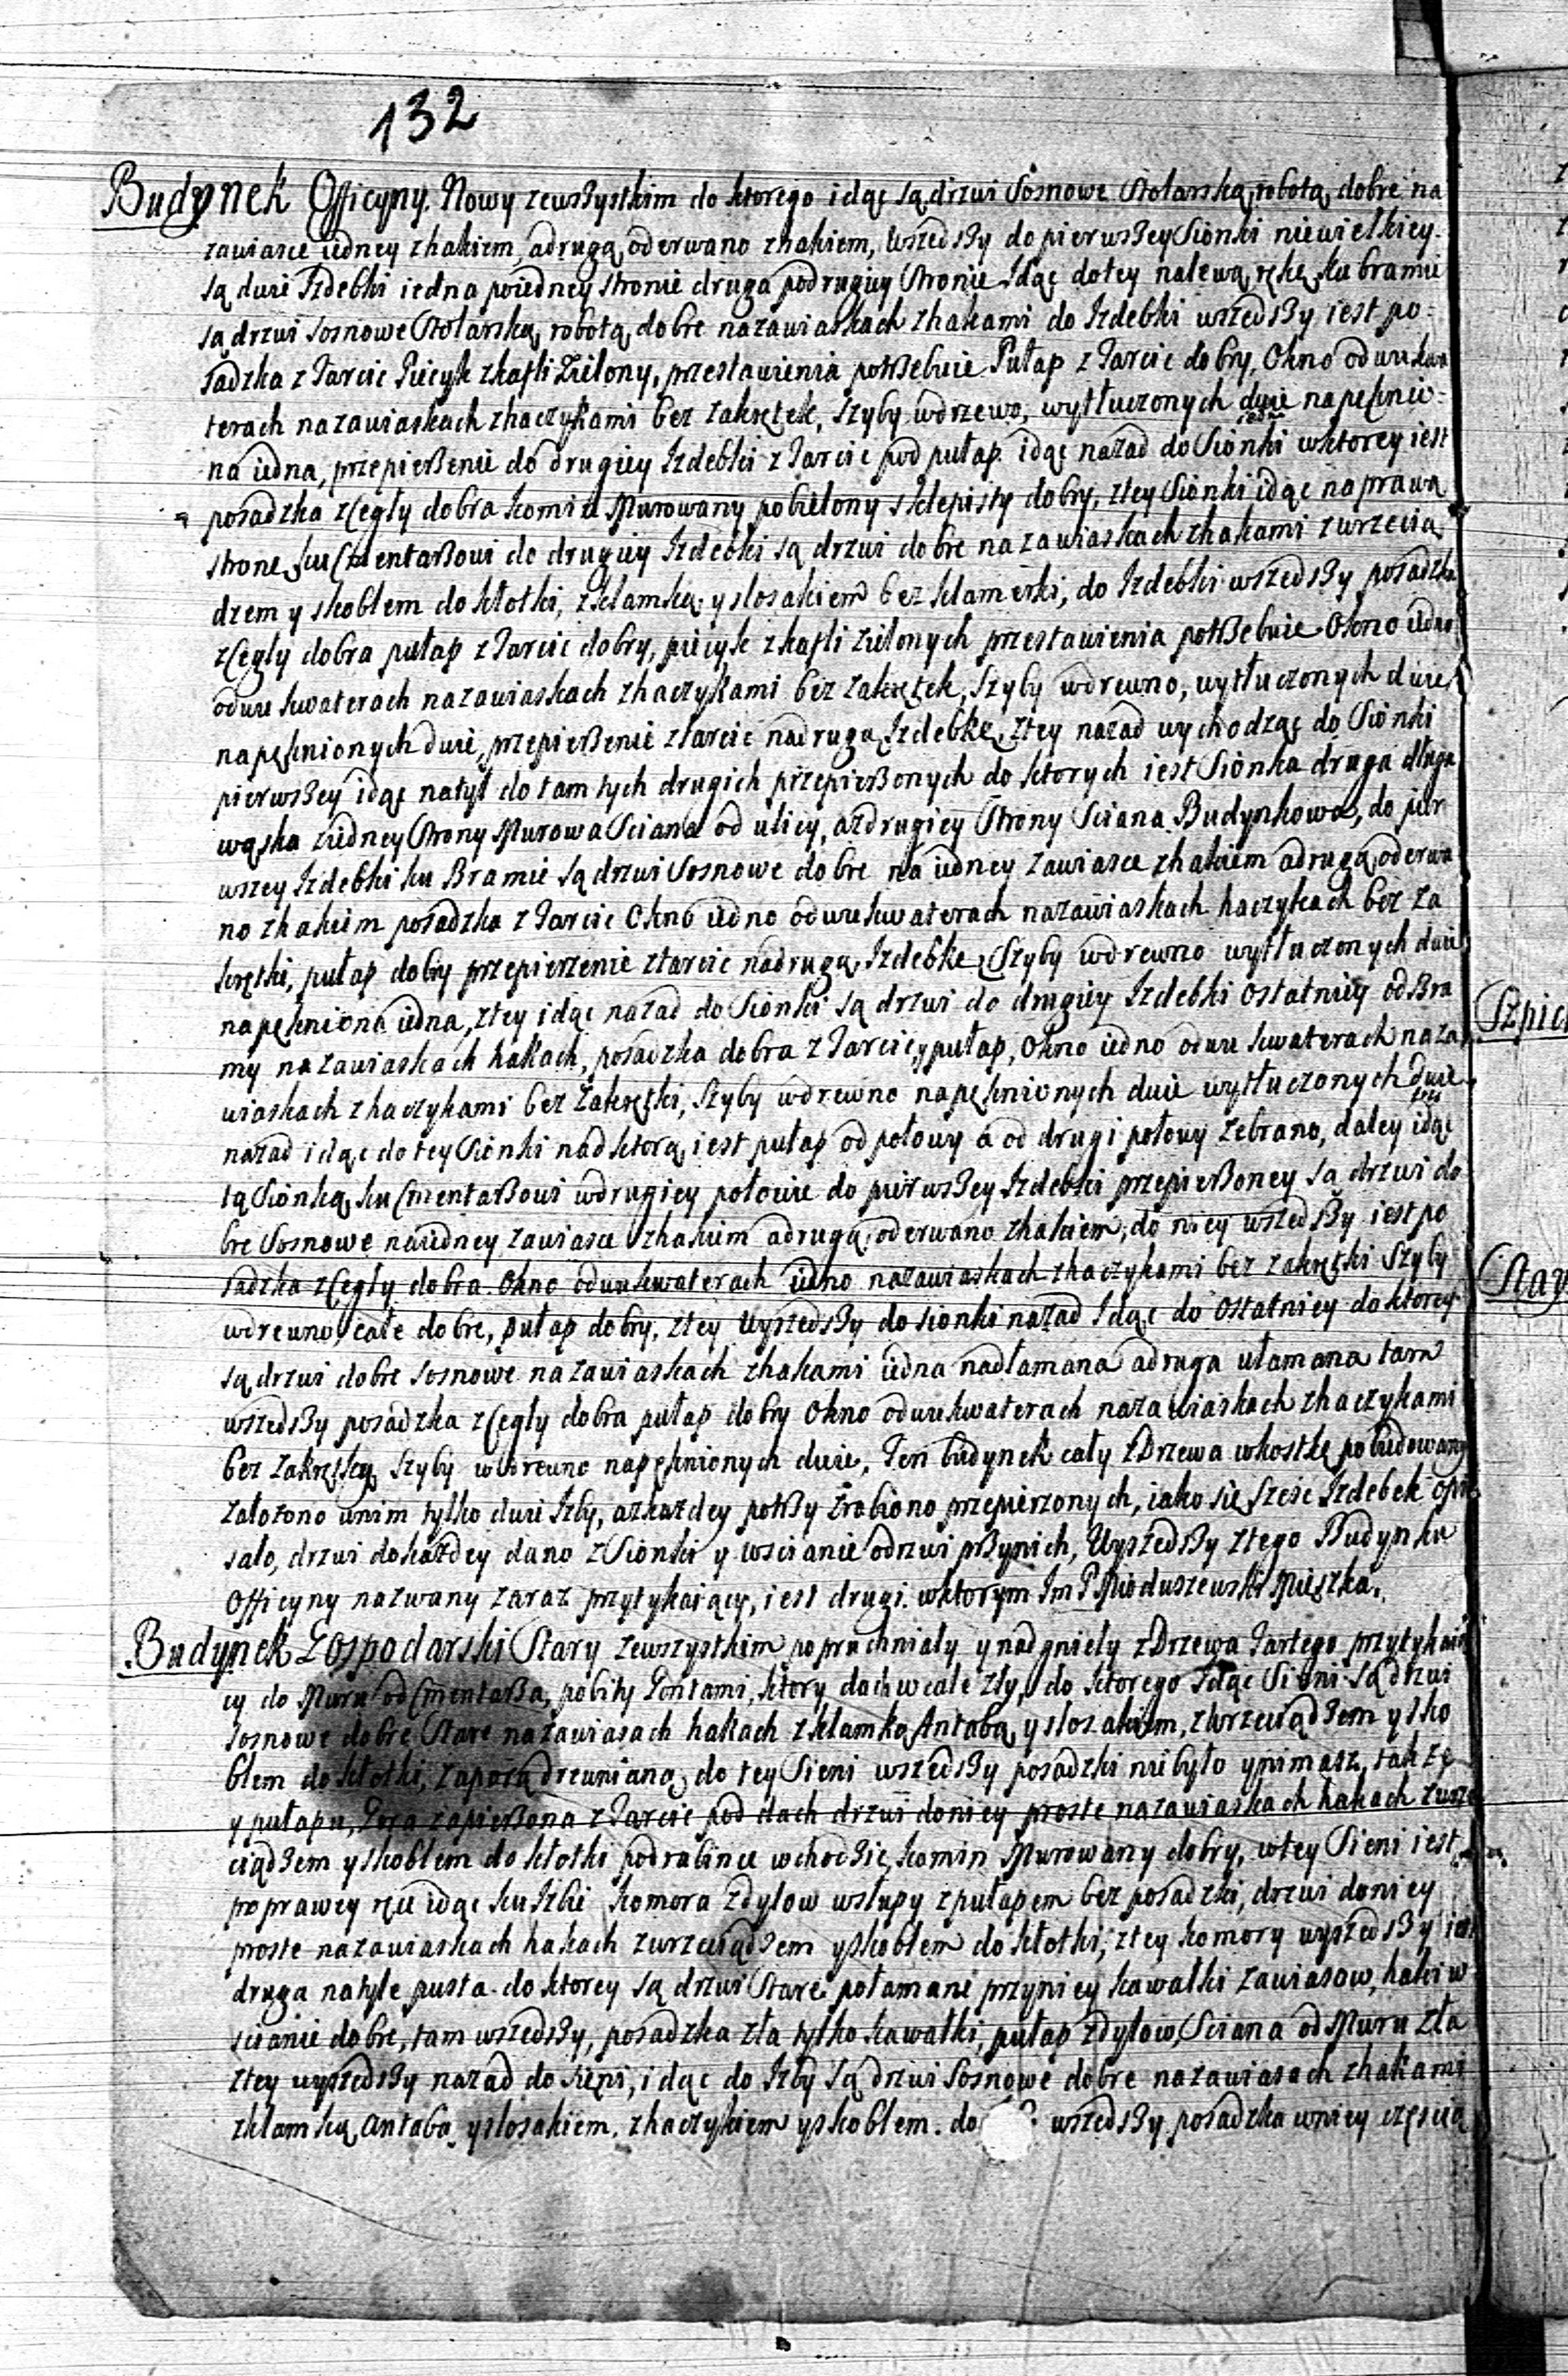 132
Budynek Officyny. Nowy zewszystkim do ktorego idąc są drzwi Sosnowe Stolarską robotą dobre na
zawiasce iedney zhakiem, adrugą oderwano zhakiem, wszedszy do pierwszey Sionki niewielkiey.
są dwie Izdebki iedna poiedney stronie druga podrugiey Stronie Idąc dotey nalewą rękę ku bramie
są drzwi sosnowe Stolarską robotą dobre nazawiaskach zhakami do Izdebki wszedszy iest po=
sadzka z Tarcic Piecyk zkafli Zielony, przestawienia potrzebuie Pułap z Tarcic dobry, Okno odwukwa
terach nazawiaskach zhaczykami bez zakrętek, szyby wdrzewo, wytłuczonych dwie napęknio=
na iedna, przepierzenie do drugiey Izdebki z Tarcic pod pułap. idąc nazad do Sionki wktorey iest
posadzka zCegły dobra komin Murowany pobielony sklepisty dobry, ztey Sionki idąc naprawą
stronę ku Cmentarzowi do drugiey Izdebki są drzwi dobre nazawiaskach zhakami zwrzecią
dzem y skoblem do kłotki, zklamką y slosakiem bez klamerki, do Izdebki wszedszy posadzka
zCegły dobra pułap z Tarcic dobry, piecyk z kafli zielonych przestawienia potrzebuie Okno iedno
odwu kwaterach nazawiaskach zhaczykami bez zakrętek, szyby wdrewno, wytłuczonych dwie,
napęknionych dwie, przepierzenie ztarcic nadrugą Izdebkę, ztey nazad wychodząc do Sionki
pierwszey idąc natył do tamtych drugich przepierzonych do ktorych iest Sionka druga długa
wąska ziedney Strony Murowa Sciana od ulicy, azdrugiey Strony Sciana Budynkowa, do pier
wszey Izdebki ku Bramie są drzwi Sosnowe dobre na iedney zawiasce zhakiem adrugą oderwa
no zhakiem posadzka z Tarcic Okno iedno odwukwaterach nazawiaskach haczykach bez za
krętki, pułap dobry przepierzenie ztarcic nadrugą Izdebkę, Szyby wdrewno wytłuczonych dwie
napękniona iedna, ztey idąc nazad do Sionki są drzwi do drugiey Izdebki ostatniey odBra
my nazawiaskach hakach, posadzka dobra z Tarcic, y pułap, Okno iedno odwu kwaterach naza
wiaskach zhaczykami bez zakrętki, szyby wdrewno napęknionych dwie wytłuczonych dwie
nazad idąc do tey Sionki nadktorą iest pułap odpołowy a od drugi połowy zebrano, daley idąc
tą Sionką, ku Cmentarzowi wdrugiey połowie do pierwszey Izdebki przepierzoney są drzwi do
bre Sosnowe naiedney zawiasce zhakiem adrugą oderwano zhakiem, do niey wszedszy iest po
sadzka zCegły dobra. Okno odwukwaterach iedno nazawiaskach zhaczykami bez zakrętki Szyby
wdrewno, całe dobre, pułap dobry, ztey Wyszedszy do sionki nazad Idąc do ostatniey do ktorey
są drzwi dobre sosnowe nazawiaskach zhakami iedna nadłamana adruga ułamana tam
wszedszy posadzka zCegły dobra pułap dobry Okno odwukwaterach nazawiaskach zhaczykami
bez zakrętki, Szyby wdrewno napęknionych dwie, Ten budynek cały zDrzewa wkostkę pobudowany
założono wnim tylko dwie Izby, azkażdey potrzy zrobiono przepierzonych, iako się sześć Izdebek opi
sało, drzwi dokażdey dano zSionki y wscianie odrzwi przynich, Wyszedszy ztego Budynku
Officyny nazwany zaraz przytykaiący, iest drugi. wktorym Im P Mioduszewski Mieszka.
Budynek Gospodarski Stary zewszystkim popruchniały y nadgniely zDrzewa Tartego przytykaią
cy do Muru od Cmentarza, pobity Gontami, ktory dach wcale zły, do ktorego Idąc Sieni są drzwi
sosnowe dobre Stare nazawiasach hakach zklamką Antabą y slosakiem, zwrzeciądzem y sko
blem do kłotki, zaporą drewnianą, do tey Sieni wszedszy posadzki niebyło y nimasz, także
y pułapu, Gora zapierzona z Tarcic pod dach drzwi doniey proste nazawiaskach hakach zwrze
ciądzem y skoblem do kłotki podrabince wchodzić, komin Murowany dobry, wtey Sieni iest
poprawey ręce idąc ku Izbie komora zdylow wsłupy zpułapem bez posadzki, drzwi doniey
proste nazawiaskach hakach zwrzeciądzem y skoblem do kłotki, ztey komory wyszedszy iest
druga natyle pusta. do ktorey są drzwi Stare połamane przyniey kawałki zawiasow, haki w
scianie dobre, tam wszedszy, posadzka zła tylko kawałki, pułap zdylow, Sciana od Muru zła
ztey wyszedszy nazad do sieni, idąc do Izby są drzwi sosnowe dobre nazawiasach zhakami
zklamką antabą y slosakiem. zhaczykiem y skoblem. do wszedszy posadzka wniey częscią
Szpic
Stay